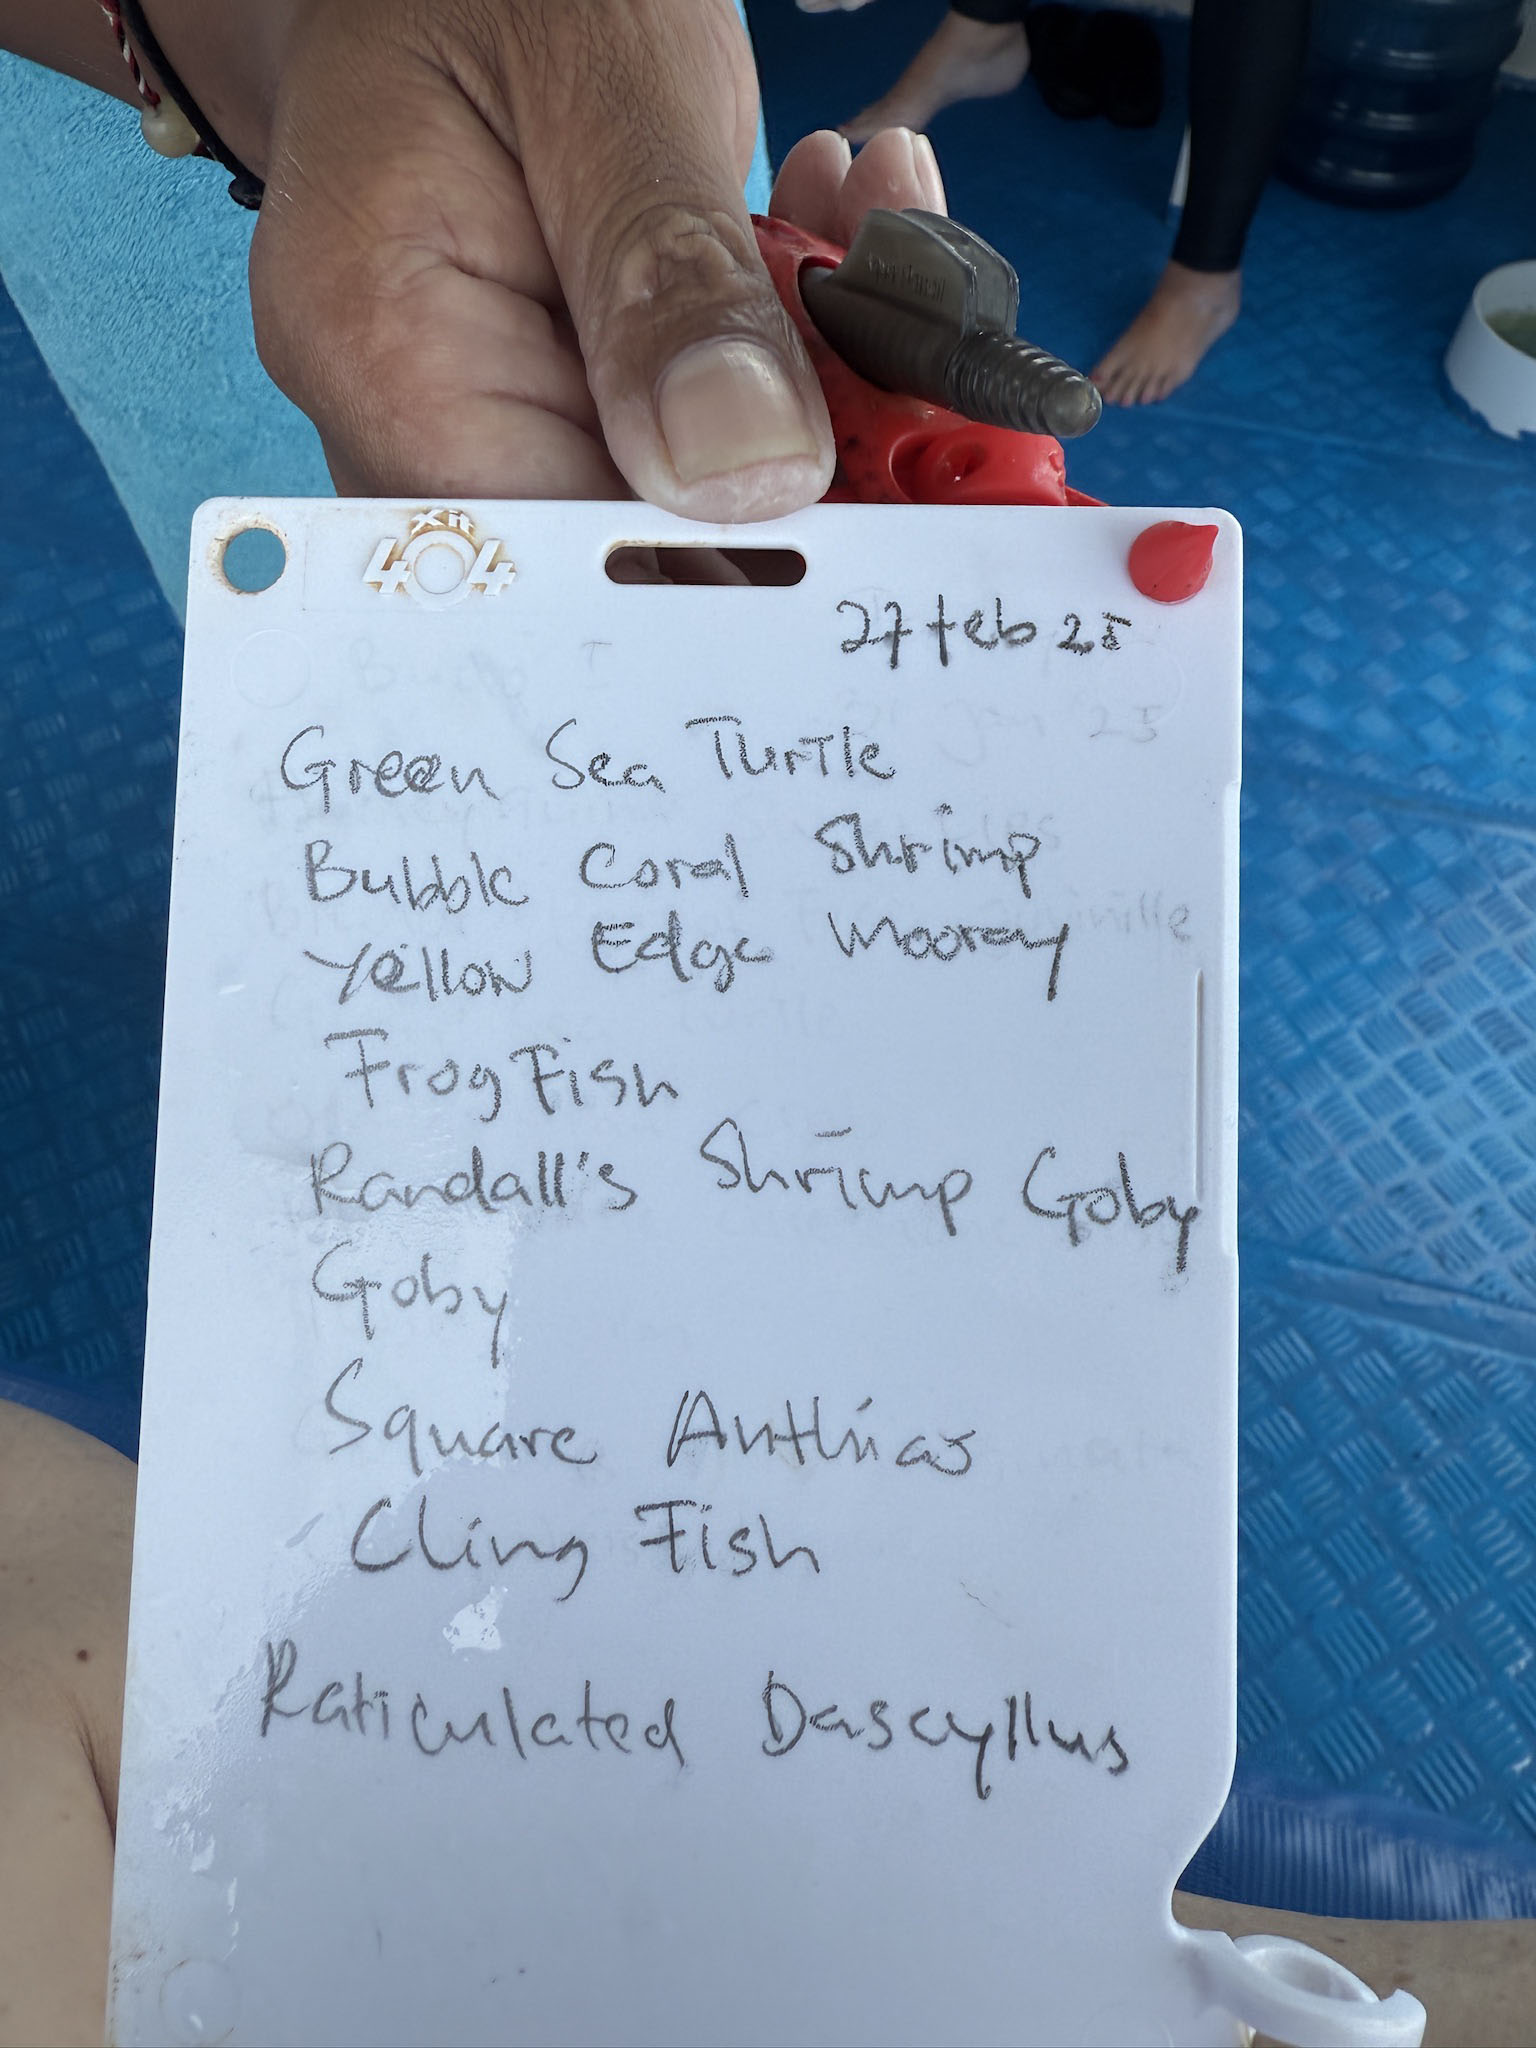 Xit
404
27 feb 25
Green Sea Turtle
Bubble Coral Shrimp
Yellow Edge Mooray
Frog Fish
Randall's Shrimp Goby
Goby
Square Anthias
Cling Fish
Raticulated Dascyllus